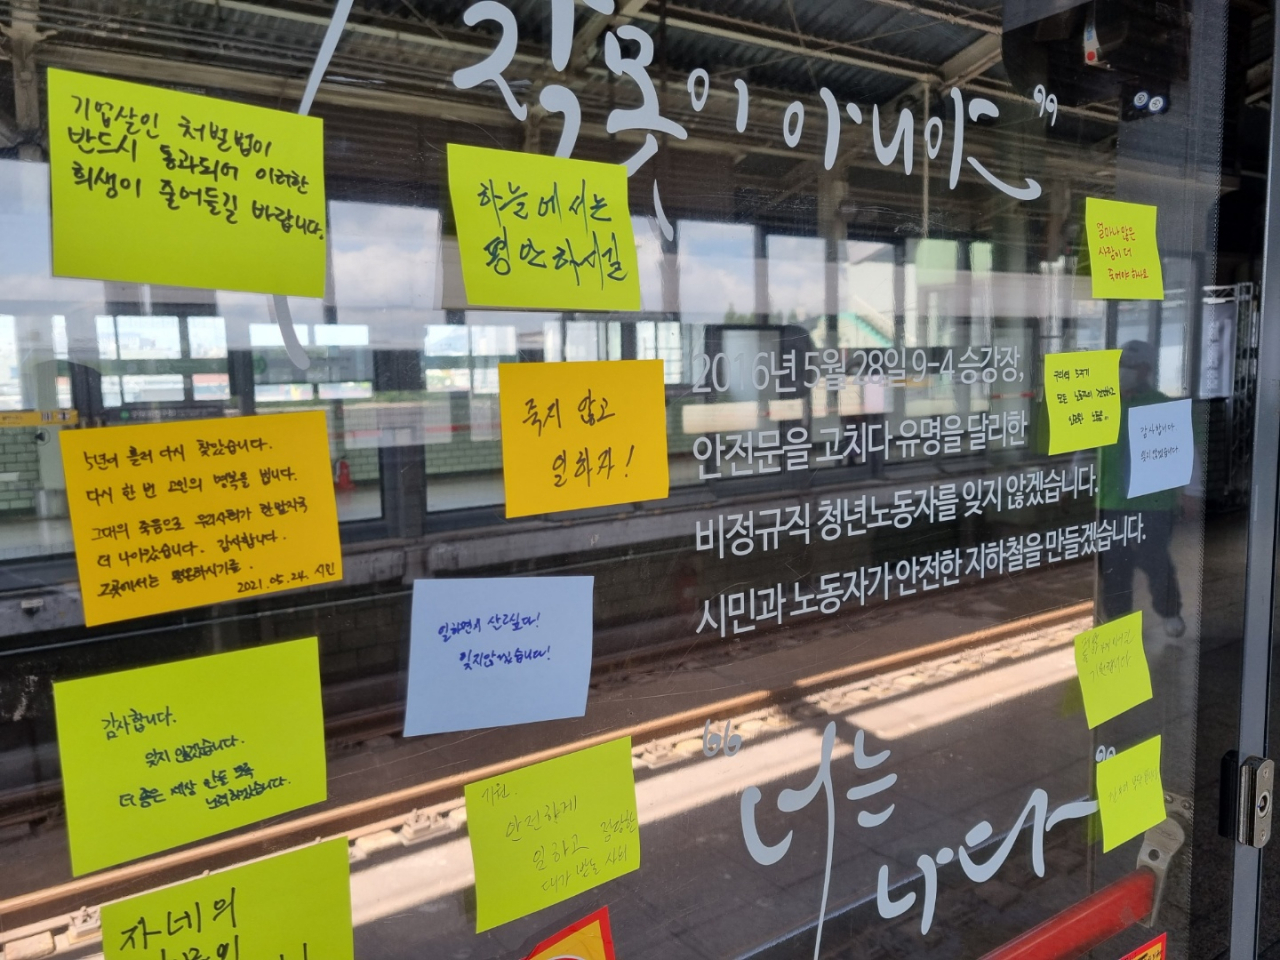 잘못이 아니야"
기업살인 처벌법이
반드시 통과되어 이러한
희생이 줄어들길 바랍니다.
하늘에서는
평안하시길
얼마나 많은
사람이 더
죽어야 하나요
2016년 5월 28일 9-4 승강장,
안전문을 고치다 유명을 달리한
비정규직 청년노동자를 잊지 않겠습니다.
시민과 노동자가 안전한 지하철을 만들겠습니다.
죽지 않고
일하자!
구의역
모든
감사합니다
잊지 않겠습니다
5년이 흘러 다시 찾았습니다.
다시 한 번 고인의 명복을 빕니다.
그대의 죽음으로 우리사회가 한발자국
더 나아갔습니다. 감사합니다.
그곳에서는 평온하시기를.
2021.05.24. 시민
일하면서 살고싶다!
잊지않겠습니다!
감사합니다.
잊지 않겠습니다.
더 좋은 세상 만들도록
노력하겠습니다.
기원.
안전하게
일하고 정당한
대가 받는 사회
기원합니다
"너는
나다"
자네의